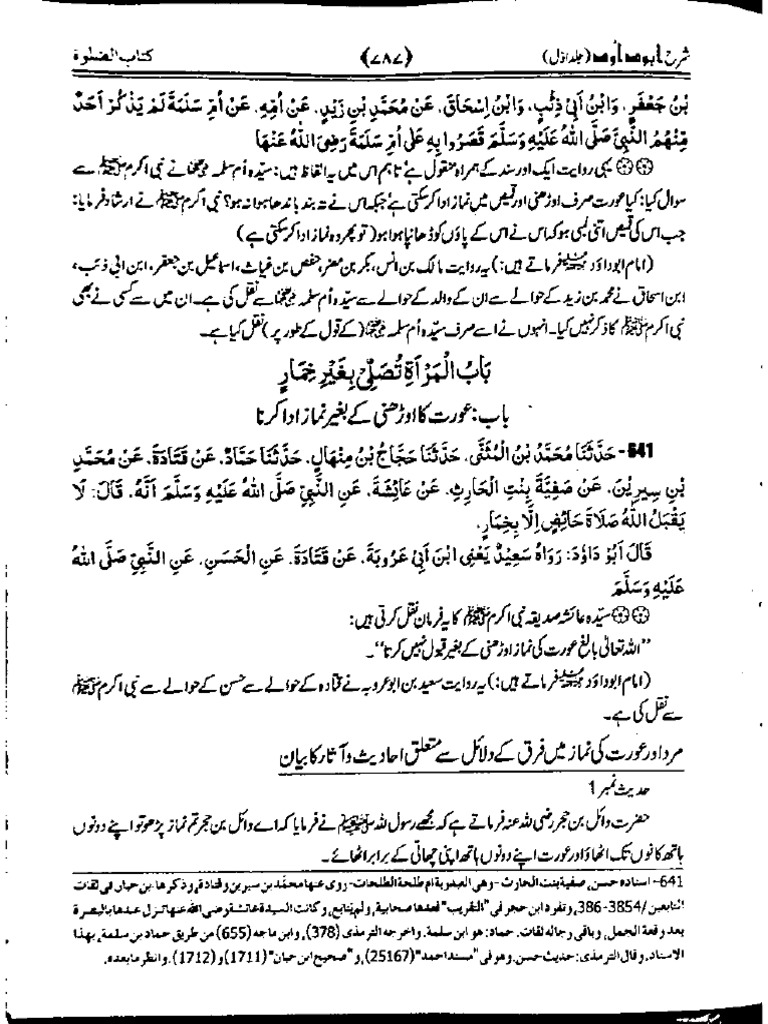 شرح ابو داؤد (جلد اوّل) ﴿۷۸۷﴾ کتاب الصلوٰة
بْنُ جَعْفَرٍ، وَابْنُ أَبِي ذِئْبٍ، وَابْنُ إِسْحَاقَ، عَنْ مُحَمَّدِ بْنِ زَيْدٍ، عَنْ أُمِّهِ، عَنْ أُمِّ سَلَمَةَ لَمْ يَذْكُرْ أَحَدٌ
مِنْهُمُ النَّبِيَّ صَلَّى اللهُ عَلَيْهِ وَسَلَّمَ قَصَرُوا بِهِ عَلَى أُمِّ سَلَمَةَ رَضِيَ اللهُ عَنْهَا
یہی روایت ایک اور سند کے ہمراہ منقول ہے تاہم اس میں یہ الفاظ ہیں: سیّدہ اُم سلمہ رضی اللہ عنہا نے نبی اکرم ﷺ سے
سوال کیا: کیا عورت صرف اوڑھنی اور قمیص میں نماز ادا کر سکتی ہے جبکہ اس نے تہ بند باندھا ہوا نہ ہو؟ نبی اکرم ﷺ نے ارشاد فرمایا:
جب اس کی قمیص اتنی لمبی ہو کہ اس نے اس کے پاؤں کو ڈھانپا ہوا ہو (تو پھر وہ نماز ادا کر سکتی ہے)
(امام ابوداؤد رحمۃ اللہ علیہ فرماتے ہیں:) یہ روایت مالک بن انس، بکر بن مضر، حفص بن غیاث، اسماعیل بن جعفر، ابن ابی ذئب،
ابن اسحاق نے محمد بن زید کے حوالے سے ان کے والد کے حوالے سے سیّدہ اُم سلمہ رضی اللہ عنہا سے نقل کی ہے۔ ان میں سے کسی نے بھی
نبی اکرم ﷺ کا ذکر نہیں کیا۔ انہوں نے اسے صرف سیّدہ اُم سلمہ رضی اللہ عنہا (کے قول کے طور پر) نقل کیا ہے۔
بَابُ الْمَرْأَةِ تُصَلِّي بِغَيْرِ خِمَارٍ
باب: عورت کا اوڑھنی کے بغیر نماز ادا کرنا
641- حَدَّثَنَا مُحَمَّدُ بْنُ الْمُثَنَّى، حَدَّثَنَا حَجَّاجُ بْنُ مِنْهَالٍ، حَدَّثَنَا حَمَّادٌ، عَنْ قَتَادَةَ، عَنْ مُحَمَّدِ
بْنِ سِيرِينَ، عَنْ صَفِيَّةَ بِنْتِ الْحَارِثِ، عَنْ عَائِشَةَ، عَنِ النَّبِيِّ صَلَّى اللهُ عَلَيْهِ وَسَلَّمَ أَنَّهُ، قَالَ: لَا
يَقْبَلُ اللهُ صَلَاةَ حَائِضٍ إِلَّا بِخِمَارٍ.
قَالَ أَبُو دَاوُدَ: رَوَاهُ سَعِيدٌ يَعْنِي ابْنَ أَبِي عَرُوبَةَ، عَنْ قَتَادَةَ، عَنِ الْحَسَنِ، عَنِ النَّبِيِّ صَلَّى اللهُ
عَلَيْهِ وَسَلَّمَ
سیّدہ عائشہ صدیقہ نبی اکرم ﷺ کا یہ فرمان نقل کرتی ہیں:
”اللہ تعالیٰ بالغ عورت کی نماز اوڑھنی کے بغیر قبول نہیں کرتا“۔
(امام ابوداؤد رحمۃ اللہ علیہ فرماتے ہیں:) یہ روایت سعید بن ابوعروبہ نے قتادہ کے حوالے سے حسن کے حوالے سے نبی اکرم ﷺ
سے نقل کی ہے۔
مرد اور عورت کی نماز میں فرق کے دلائل سے متعلق احادیث و آثار کا بیان
حدیث نمبر 1
حضرت وائل بن حجر رضی اللہ عنہ فرماتے ہے کہ مجھے رسول اللہ ﷺ نے فرمایا کہ اے وائل بن حجر تم نماز پڑھو تو اپنے دونوں
ہاتھ کانوں تک اٹھاؤ اور عورت اپنے دونوں ہاتھ اپنی چھاتی کے برابر اٹھائے۔
641- اسناده حسن، صفية بنت الحارث- وهي العبدوية ام طلحة الطلحات- روى عنها محمد بن سيرين وقتادة، وذكرها ابن حبان في ثقات
التابعين/3854-386، وتفرد ابن حجر في "التقريب" فعدها صحابية، ولم يتابع، وكانت السيدة عائشة رضي الله عنها تنزل عندها بالبصرة
بعد وقعة الجمل، وباقي رجاله ثقات. حماد: هو ابن سلمة. واخرجه الترمذي (378)، وابن ماجه (655) من طريق حماد بن سلمة، بهذا
الاسناد. وقال الترمذي: حديث حسن. وهو في "مسند احمد" (25167)، و "صحيح ابن حبان" (1711) و (1712). وانظر ما بعده.